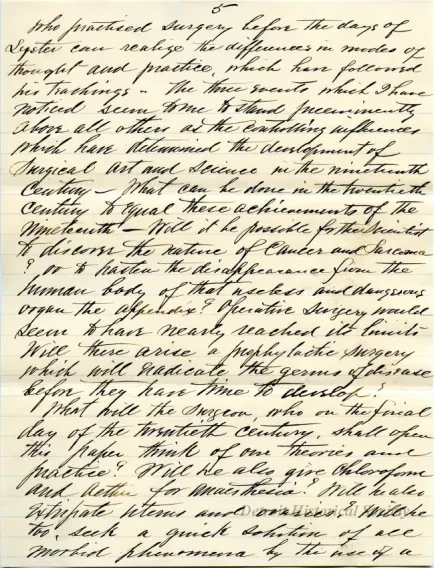 5
who practised surgery before the days of
Lyster can realize the differences in modes of
thought and practice, which have followed
his teachings - The three events which I have
noticed seem to me to stand preeminently
above all others as the controlling influences
which have determined the development of
Surgical Art and Science in the nineteenth
Century - What can be done in the twentieth
century to equal these achievements of the
Nineteenth - Will it be possible for the Scientist
to discover the nature of Cancer and Sarcoma
? or to hasten the disappearance from the
human body of that useless and dangerous
organ the appendix? Operative Surgery would
seem to have nearly reached its limits
Will there arise a prophylactic Surgery
which will eradicate the germs of disease
before they have time to develop?
What will the Surgeon, who on the final
day of the twentieth century, shall open
this paper think of our theories and
practice? Will he also give Chloroform
and Aether for anaesthesia? Will he also
Extirpate uterus and ovaries? Will he
too, seek a quick solution of all
morbid phenomena by the use of a
Detroit Historical Society